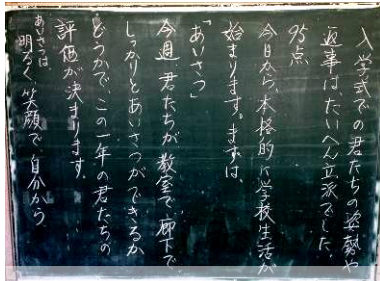 入学式での君たちの姿勢や
返事は、たいへん立派でした。
95点
今日から本格的に学校生活が
始まります。まずは、
「あいさつ」
今週、君たちが教室で、廊下で
しっかりとあいさつができるか
どうかで、この一年の君たちの
評価が決まります。
あいさつは
明るく笑顔で自分から